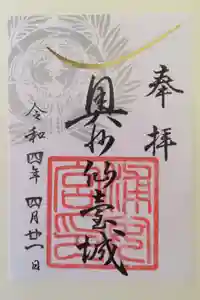 奉拝
奥州仙臺城
令和四年四月廿一日
浦安
宮印